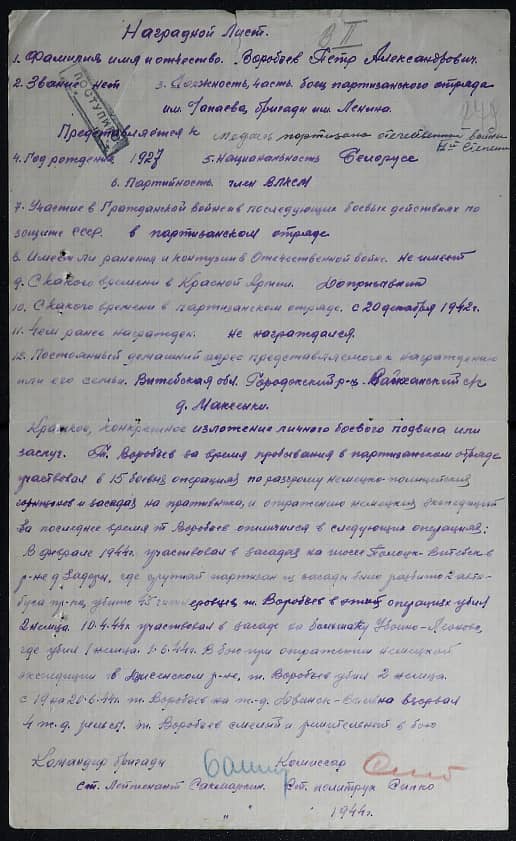 Наградной Лист.
1. Фамилия имя и отчество. Воробьев Пётр Александрович.
2. Звание нет 3. Должность, часть боец партизанского отряда
им. Чапаева, бригады им. Ленина.
ПОСТУПИЛО
Представляется к медаль партизана отечественной войны
II степени
4. Год рождения 1927 5. Национальность Белорусс
6. Партийность член ВЛКСМ
7. Участие в Гражданской войне и в последующих боевых действиях по
защите СССР. в партизанском отряде
8. Имеет ли ранения и контузии в Отечественной войне. Не имеет
9. С какого времени в Красной Армии. Допризывник
10. С какого времени в партизанском отряде. с 20 декабря 1942г.
11. Чем ранее награжден. не награждался.
12. Постоянный домашний адрес представляемого к награждению
или его семьи. Витебская обл. Городокский р-н, с/с
д. Максенки.
Краткое, конкретное изложение личного боевого подвига или
заслуг. Т. Воробьев за время пребывания в партизанском отряде
участвовал в 15 боевых операциях по разгрому немецко-полицейских
гарнизонов и засадах на противника, и отражению немецких экспедиций
За последнее время т Воробьев отличился в следующих операциях:
В феврале 1944г. участвовал в засадах на шоссе Полоцк-Витебск в
р-не д. где группой партизан из засады было разбито 2 авто-
буса пр-ка, убито 45 гитлеровцев, т. Воробьев в этих операциях убил
2 немца. 10.4.44г участвовал в засаде на большаку
где убил 1 немца. 1.6.44г. В бою при отражении немецкой
экспедиции в р-не, т. Воробьев убил 2 немца.
с 19 на 20.6.44г. т. Воробьев на ж-д. Двинск-Вильна взорвал
4 ж.д. рельсы. т. Воробьев смелый и решительный в бою
Командир бригады Комиссар
Ст. Лейтенант Сакмаркин. Ст. политрук Сипко
1944г.